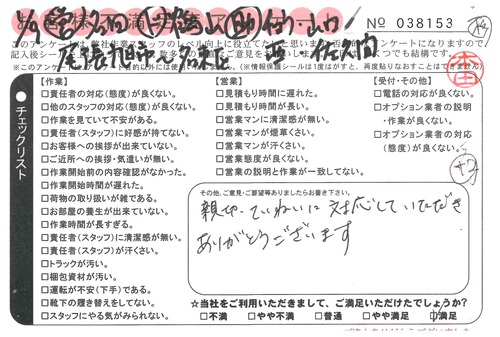 No 038153
このアンケートは、弊社作業スタッフのレベル向上に役立てたいと思い
【作業】
□責任者の対応(態度)が良くない。
□他のスタッフの対応(態度)が良くない。
□作業を見ていて不安がある。
□責任者(スタッフ)に好感が持てない。
□お客様への挨拶が出来ていない。
□ご近所への挨拶・気遣いが無い。
□作業開始前の内容確認がなかった。
□作業開始時間が遅れた。
□荷物の取り扱いが雑である。
□お部屋の養生が出来ていない。
□作業時間が長すぎる。
□責任者(スタッフ)に清潔感が無い。
□責任者(スタッフ)が汗くさい。
□トラックが汚い。
□梱包資材が汚い。
□運転が不安(下手)である。
□靴下の履き替えをしてない。
□スタッフにやる気がみられない。
チェックリスト
【営業】
□見積もり時間に遅れた。
□見積もり時間が長い。
□営業マンに清潔感が無い。
□営業マンが煙草くさい。
□営業マンが汗くさい。
□営業態度が良くない。
□営業の説明と作業が一致してない。
【受付・その他】
□電話の対応が良くない。
□オプション業者の説明
・作業が良くない。
□オプション業者の対応
(態度)が良くない。
その他、ご意見・ご要望等ありましたらお書き下さい。
親切、ていねいに対応していただき
ありがとうございます
☆当社をご利用いただきまして、ご満足いただけたでしょうか?
□不満 □やや不満 □普通 □やや満足 □満足